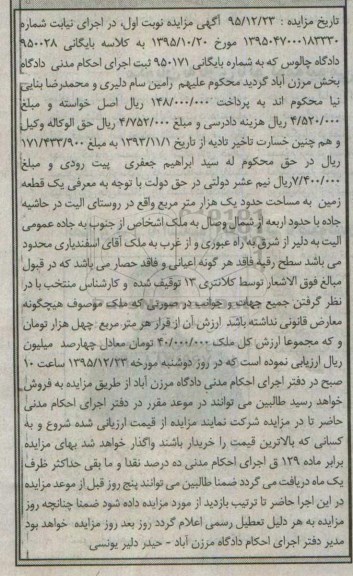 تاریخ مزایده : ۹۵/۱۲/۲۳ آگهی مزایده نوبت اول، در اجرای نیابت شماره
۱۳۹۵۰۴۷۰۰۰۱۸۳۳۳۰ مورخ ۱۳۹۵/۱۰/۲۰ به کلاسه بایگانی ۹۵۰۰۲۸
دادگاه چالوس که به شماره بایگانی ۹۵۰۱۷۱ ثبت اجرای احکام مدنی دادگاه
بخش مرزن آباد گردید محکوم علیهم رامین سام دلیری و محمدرضا بنایی
نیا محکوم اند به پرداخت ۱۴۸/۰۰۰/۰۰۰ ریال اصل خواسته و مبلغ
۴/۵۲۰/۰۰۰ ریال هزینه دادرسی و مبلغ ۴/۷۵۲/۰۰۰ ریال حق الوکاله وکیل
و هم چنین خسارت تاخیر تادیه از تاریخ ۱۳۹۳/۱۱/۱ به مبلغ ۱۷۱/۴۳۳/۹۰۰
ریال در حق محکوم له سید ابراهیم جعفری پیت رودی و مبلغ
۷/۴۰۰/۰۰۰ریال نیم عشر دولتی در حق دولت با توجه به معرفی یک قطعه
زمین به مساحت حدود یک هزار متر مربع واقع در روستای الیت در حاشیه
جاده با حدود اربعه از شمال وصال به ملک اشخاص از جنوب به جاده عمومی
الیت به دلیر از شرق به راه عبوری و از غرب به ملک آقای اسفندیاری محدود
می باشد سطح رقبه فاقد هر گونه اعیانی و فاقد حصار می باشد که در قبول
مبالغ فوق الاشعار توسط کلانتری ۱۳ توقیف شده و کارشناس منتخب با در
نظر گرفتن جمیع جهات و جوانب در صورتی که ملک موصوف هیچگونه
معارض قانونی نداشته باشد ارزش آن از قرار هر متر مربع چهل هزار تومان
و که مجموعا ارزش کل ملک ۴۰/۰۰۰/۰۰۰ تومان معادل چهارصد میلیون
ریال ارزیابی نموده است که در روز دوشنبه مورخه ۱۳۹۵/۱۲/۲۳ ساعت ۱۰
صبح در دفتر اجرای احکام مدنی دادگاه مرزن آباد از طریق مزایده به فروش
خواهد رسید طالبین می توانند در موعد مقرر در دفتر اجرای احکام مدنی
حاضر تا در مزایده شرکت نمایند مزایده از قیمت ارزیابی شده شروع و به
کسانی که بالاترین قیمت را خریدار باشند واگذار خواهد شد بهای مزایده
برابر ماده ۱۲۹ ق اجرای احکام مدنی ده درصد نقدا و ما بقی حداکثر ظرف
یک ماه دریافت می گردد ضمنا طالبین می توانند پنج روز قبل از موعد مزایده
در این اجرا حاضر تا ترتیب بازدید از مورد مزایده داده شود ضمنا چنانچه روز
مزایده به هر دلیل تعطیل رسمی اعلام گردد روز بعد روز مزایده خواهد بود
مدیر دفتر اجرای احکام دادگاه مرزن آباد - حیدر دلیر یونسی